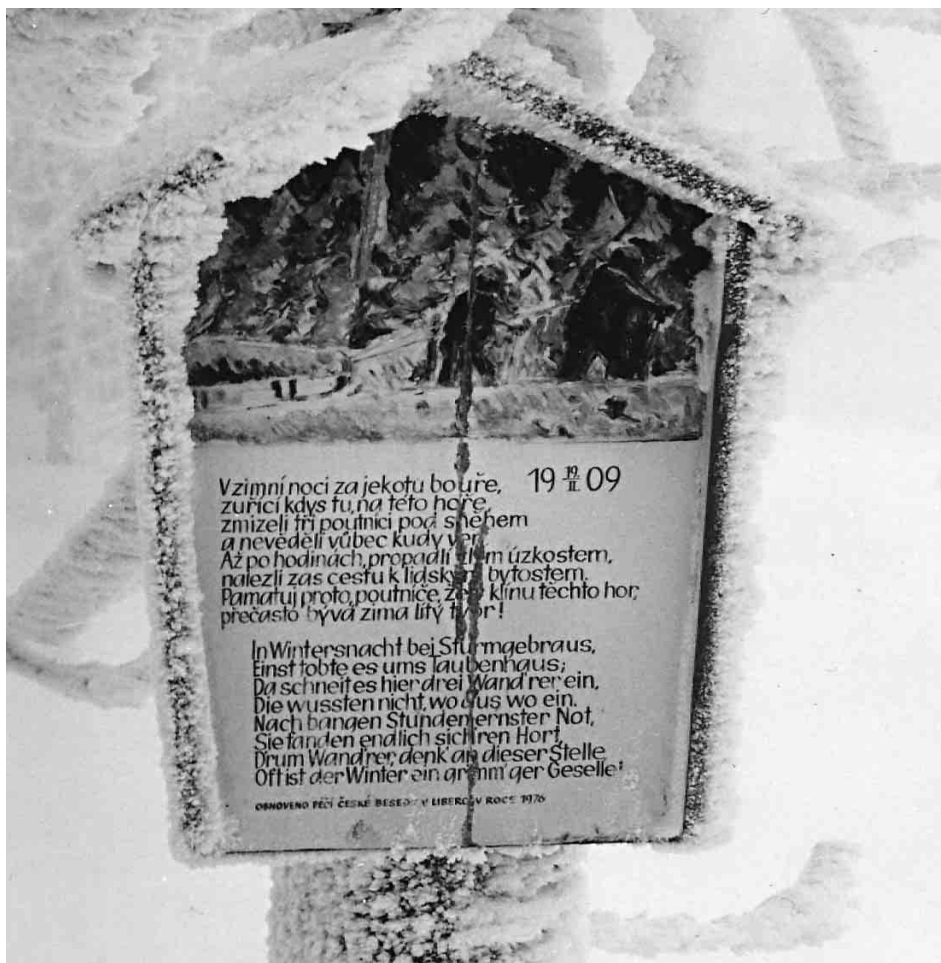 V zimní noci za jekotu bouře,
19 19. II. 09
zuřící kdys tu, na této hoře,
zmizeli tři poutníci pod sněhem
a nevěděli vůbec kudy ven.
Až po hodinách, propadlí úzkostem,
nalezli zas cestu k lidským bytostem.
Pamatuj proto, poutníče, že v klínu těchto hor,
přečasto bývá zima lítý tvor!
In Wintersnacht bei Sturmgebraus,
Einst tobte es ums Taubenhaus;
Da schneit es hier drei Wand'rer ein,
Die wussten nicht, wo aus wo ein.
Nach bangen Stunden ernster Not,
Sie fanden endlich sich'ren Hort,
Drum Wand'rer, denk' an dieser Stelle
Oft ist der Winter ein grimm'ger Geselle!
OBNOVENO PÉČÍ ČESKÉ BESEDY V LIBERCI V ROCE 1976